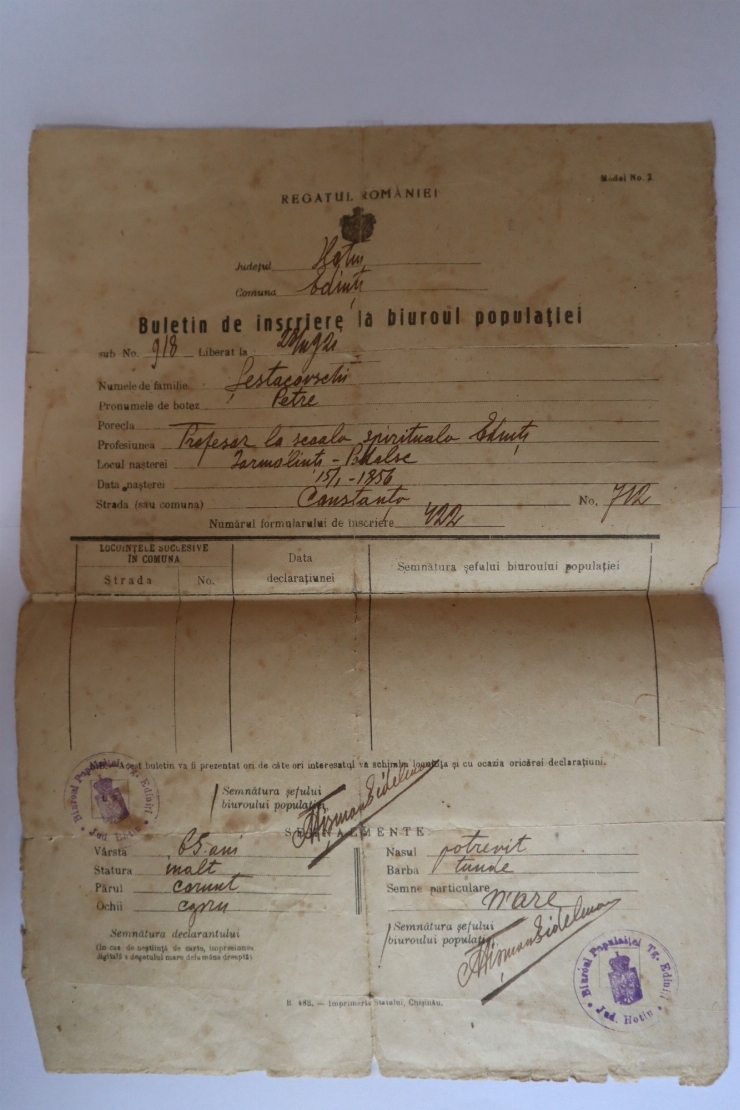 Model No. 2
REGATUL ROMÂNIEI
Județul Hotin
Comuna Edinți
Buletin de inscriere la biuroul populației
sub No. 918 Liberat la
Numele de familie Șestacovschi
Pronumele de botez Petre
Porecla
Profesiunea Profesor la scoala spirituala Edinți
Locul nașterei Iarmolinți - Podolsc
Data nașterei 15/I - 1856
Strada (sau comuna) Constanța No. 712
Numărul formularului de inscriere 422
LOCUINȚELE SUCCESIVE
ÎN COMUNA
Strada No.
Data
declarațiunei
Semnătura șefului biuroului populației
acest buletin va fi prezentat ori de câte ori interesatul va schimba locuința și cu ocazia oricărei declarațiuni.
Semnătura șefului
biuroului populației
SEMNALMENTE
Vârsta 65 ani
Statura inalt
Părul carunt
Ochii capru
Nasul potrevit
Barba tunde
Semne particulare n'are
Semnătura declarantului
(în caz de neștiință de carte, impresiunea
digitală a degetului mare dela mâna dreaptă)
Semnătura șefului
biuroului populației
R. 482. — Imprimeria Statului, Chișinău.
Biuroul Populației Tg. Edinți
Jud. Hotin
Biuroul Populației Tg. Edinți
Jud. Hotin